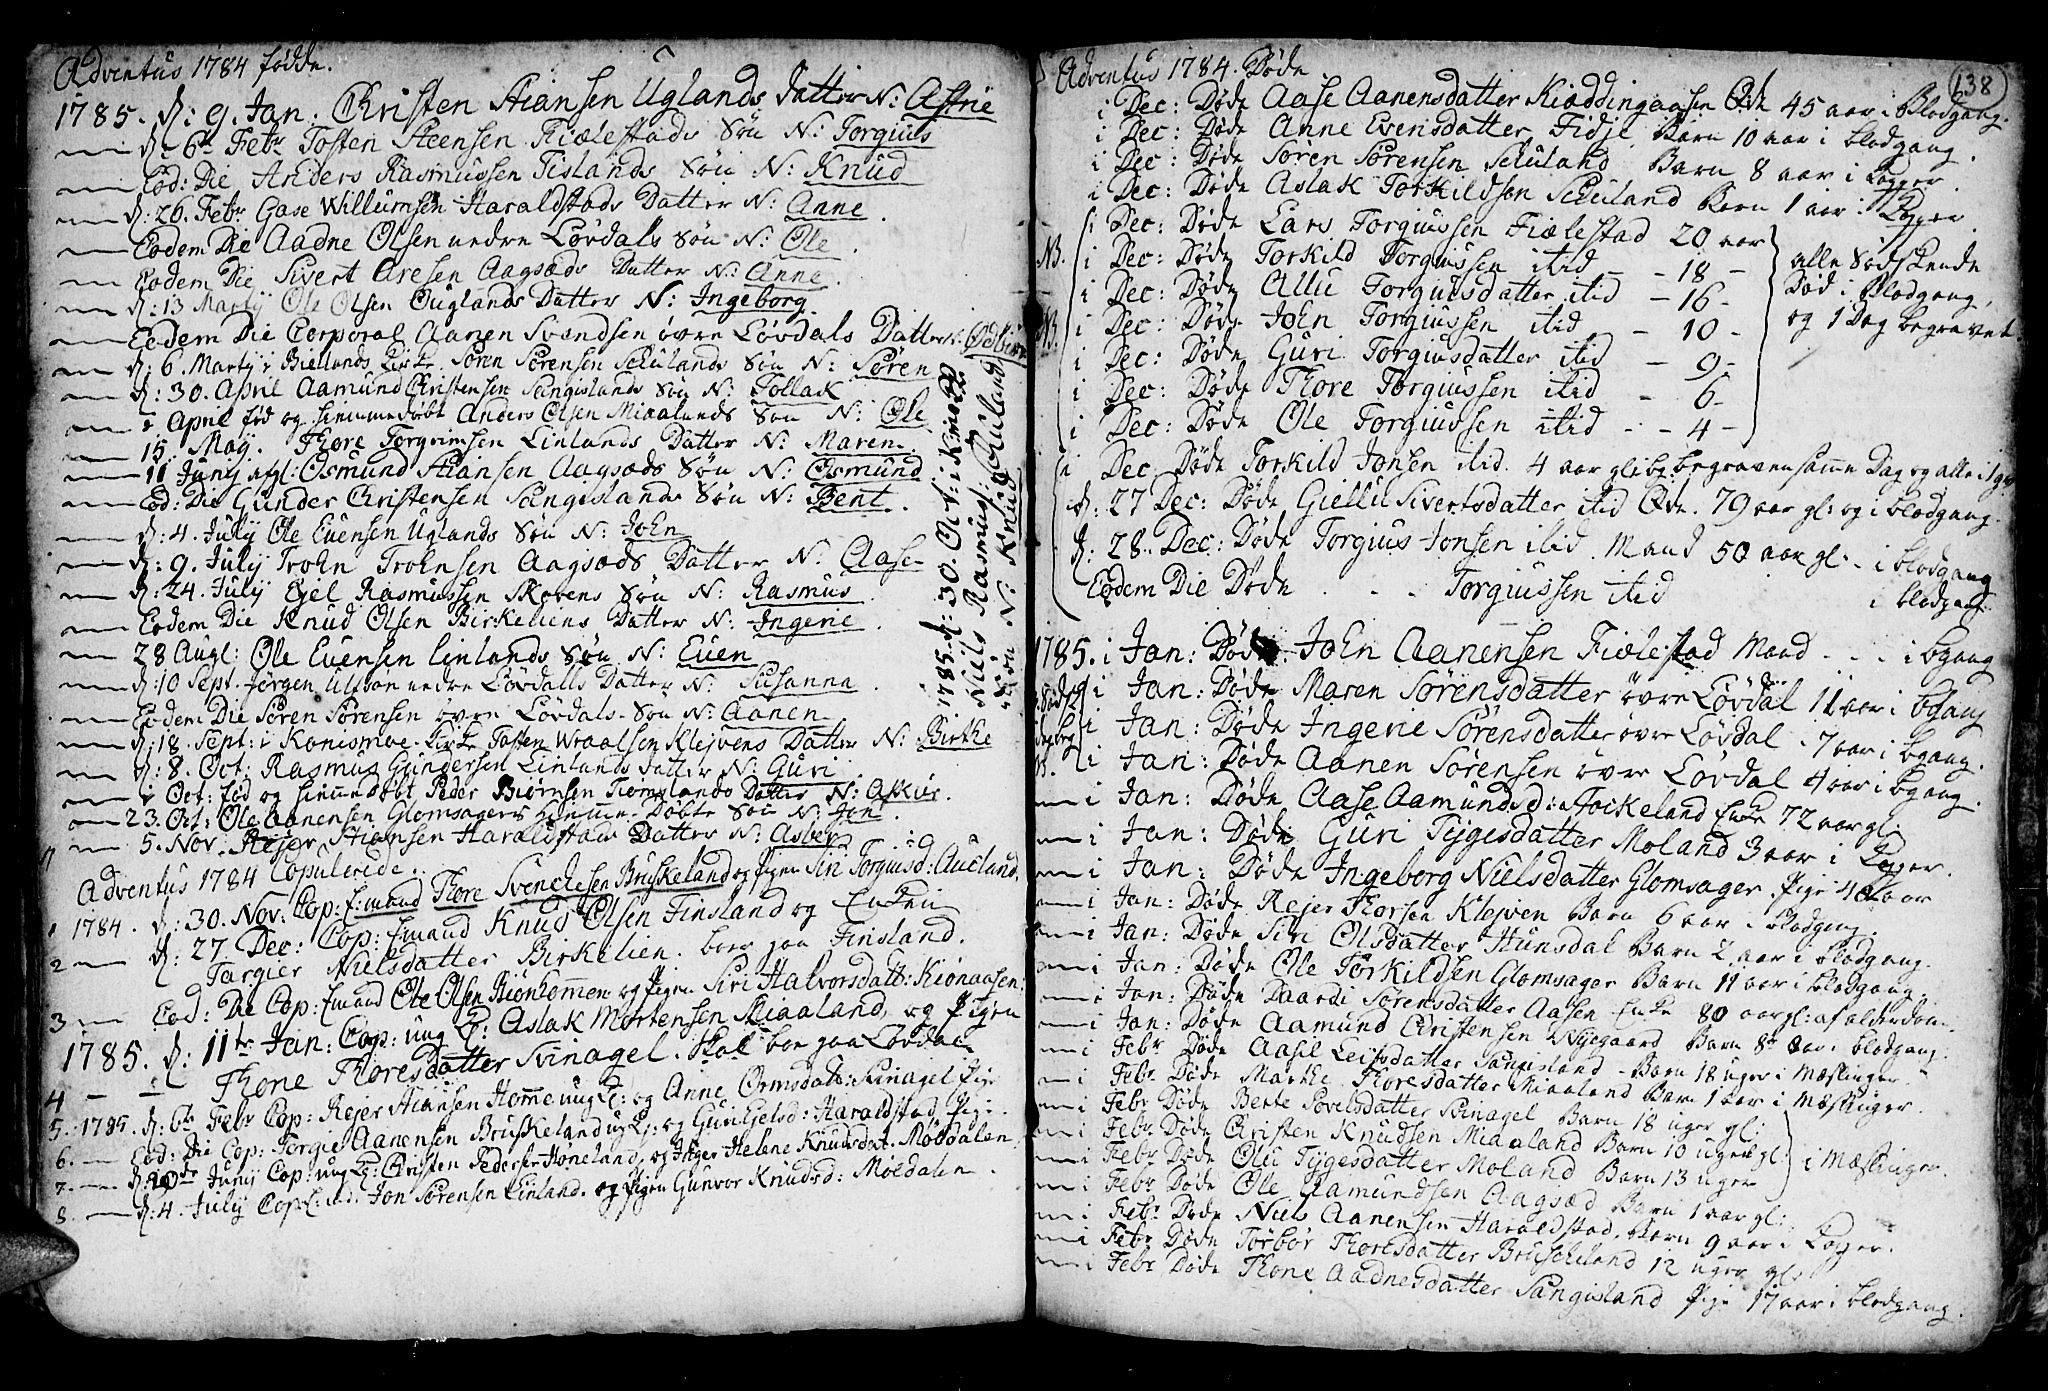 Adventus 1784 fødde.
1785. d: 9. Jan: Christen Stiansen Uglands Datter N: Astrie
d: 6te Febr Tosten Steensen Fiælestads Søn N: Torgius
Eod: Die Anders Rasmussen Tislands Søn N: Knud
d: 26. Febr Gase Willumsen Haraldstads Datter N: Anne.
Eodem Die Aadne Olsen nedre Løvdals Søn N: Ole.
Eodem Die Sivert Aresen Aagsæds Datter N: Anne.
d: 13 Martij Ole Olsen Ouglands Datter N: Ingeborg.
Eodem Die Corporal Aanen Svendsen øvre Løvdals Datter N:
d: 6. Martij i Bielands Kirke Søren Sørensen Schulands Søn N: Søren
d: 30. April Aamund Christensen Sangislands Søn N: Tollak
i April fød og hiemmedøbt Anders Olsen Miaalands Søn N: Ole
15. May. Thore Torgrimsen Linlands Datter N: Maren.
11 Juny afgl: Osmund Stiansen Aagsæds Søn N: Osmund
Eod: Die Gunder Christensen Sangislands Søn N: Bent.
d: 4. July Ole Evensen Uglands Søn N: John
d: 9. July Trohn Trohnsen Aagsæds Datter N: Aase
d: 24. July Ejel Rasmussen Skovens Søn N: Rasmus
Eodem Die Knud Olsen Birkeliens Datter N: Ingerie.
28 Augl: Ole Evensen Linlands Søn N: Even
d: 10 Sept. Jørgen Ulfson nedre Løvdalls Datter N: Susanna.
Eodem Die Søren Sørensen øvre Løvdals Søn N: Aanen
d: 18. Sept: i Konismoe Kirke Tosten Wraalsen Klejvens Datter N: Birthe
d: 8. Oct: Rasmus Gundersen Linlands Datter N: Guri
i Oct: fød og hiemmedøbt Peder Biørnsen Datter N:
23. Oct: Ole Aanensen Glomsagers hiemme Døbte Søn N: Jon.
5. Nov. Rejer Stiansen Haraldstads Datter N: Asber
1785. d: 30. Oct: i
Niels Rasmus: Auland
Søn N: Knud
Adventus 1784 Copulerede.
1 1784. d: 30. Nov: Cop: Emand Thore Svenchesen Bruskeland og Pigen Siri Torgiusd: Aucland.
2 d: 27 Dec: Cop: Emand Knud Olsen Finsland og Enken
Targier Nielsdatter Birkelien. boer paa Finsland.
3 Eod: Die Cop: Emand Ole Olsen Stiønhommen og Pigen Siri Halvorsdatt: Kiønaasen:
1785. d: 11te Jan: Cop: ung K: Aslak Mortensen Miaaland, og Pigen
4 Thone Thoresdatter Svinagel. Skal boe paa Løvdal
5. 1785. d: 6te Febr Cop: Rejer Stiansen Homme ung K: og Anne Ormsdatt: Svinagel Pige
6. Eod: Die Cop: Torgie Aanensen Bruskeland ung K: og Guri Ejelsd: Haraldstad, Pige.
7. Juny Cop: ung K: Christen Pederse Høneland, og Pigen Helene Knudsdat. Møbdalen
8. d: 4. July Cop: Jon Sørensen Linland. og Pigen Gunvor Knudsd: Moldalen.
138
Adventus 1784. Døde
i Dec: Døde Aase Aanensdatter Kiøddingaasen Qde 45 aar i Blodgang.
i Dec: Døde Anne Evensdatter Fidje Barn 10 aar i blodgang.
i Dec: Døde Søren Sørensen Schuland Barn 8 aar i Kopper.
i Dec: Døde Aslak Torkildsen Schuland Barn 1 aar i Kopper.
i Dec: Døde Lars Torgiussen Fiælestad 20 aar
NB. i Dec: Døde Torkild Torgiussen itid - - 18 -
i Dec: Døde Allu Torgiusdatter itid - 16 -
NB. i Dec: Døde John Torgiussen itid - 10 -
i Dec: Døde Guri Torgiusdatter itid - 9 -
i Dec: Døde Thore Torgiussen itid - 6 -
i Dec: Døde Ole Torgiussen itid - - 4 -
alle Sødskende
Død i Blodgang,
og 1 Dag begravet.
i Dec Døde Torkild Jonsen itid. 4 aar gl: begraven samme Dag og alle i 1 gr
d: 27 Dec: Døde Giellu Sivertsdatter itid Qde. 79 aar gl: og i blodgang.
d: 28. Dec: Døde Torgius Jonsen itid. Mand 50 aar gl: - i blodgang
Eodem Die Døde . . - Torgiussen itid i blodgang.
1785. i Jan: Døde: John Aanensen Fiælestad Mand - - - i bgang
i Jan: Døde Maren Sørensdatter øvre Løvdal 11 aar i bgang
i Jan: Døde Ingerie Sørensdatter øvre Løvdal - 7 aar i bgang.
i Jan: Døde Aanen Sørensen øvre Løvdal 4 aar i bgang.
i Jan: Døde Aase Aamundsd: Fockeland Enke 72 aar gl:
i Jan: Døde Guri Tygesdatter Moland 3 aar i Kopper.
i Jan: Døde Ingeborg Nielsdatter Glomsager. Pige 40 aar
i Jan: Døde Rejer Thorsen Klejven Barn 6 aar i Blodgang.
i Jan: Døde Siri Olsdatter Hunsdal Barn 2 aar i blodgang.
i Jan: Døde Ole Torkildsen Glomsager Barn 11 aar i blodgang.
i Jan: Døde Baardi Sørensdatter Aasen Enke 80 aar gl: af alderdom.
i Jan: Døde Aamund Christensen Nyegaard Barn 8te aar i blodgang.
i Febr Døde Aasil Leifsdatter Sangisland - Barn 18 uger i Mæslinger
i Febr Døde Marthe Thoresdatter Miaaland Barn 1 aar i Mæslinger.
i Febr Døde Berte Tovelsdatter Svinagel Barn 18 uger gl:
i Febr Døde Christen Knudsen Miaaland Barn 10 uger gl:
i Febr Døde Olu Tygesdatter Moland Barn 13 uger
i Mæslinger.
i Febr Døde Ole Aamundsen Aagsæd Barn 1 aar gl:
i Febr Døde Niels Aanensen Haraldstad, Barn 9 aar i Kopper.
i Febr Døde Torbør Thoresdatter Bruscheland 12 uger gl:
i Febr Døde Thone Aadnesdatter Sangisland Pige 17 aar i blodgang.